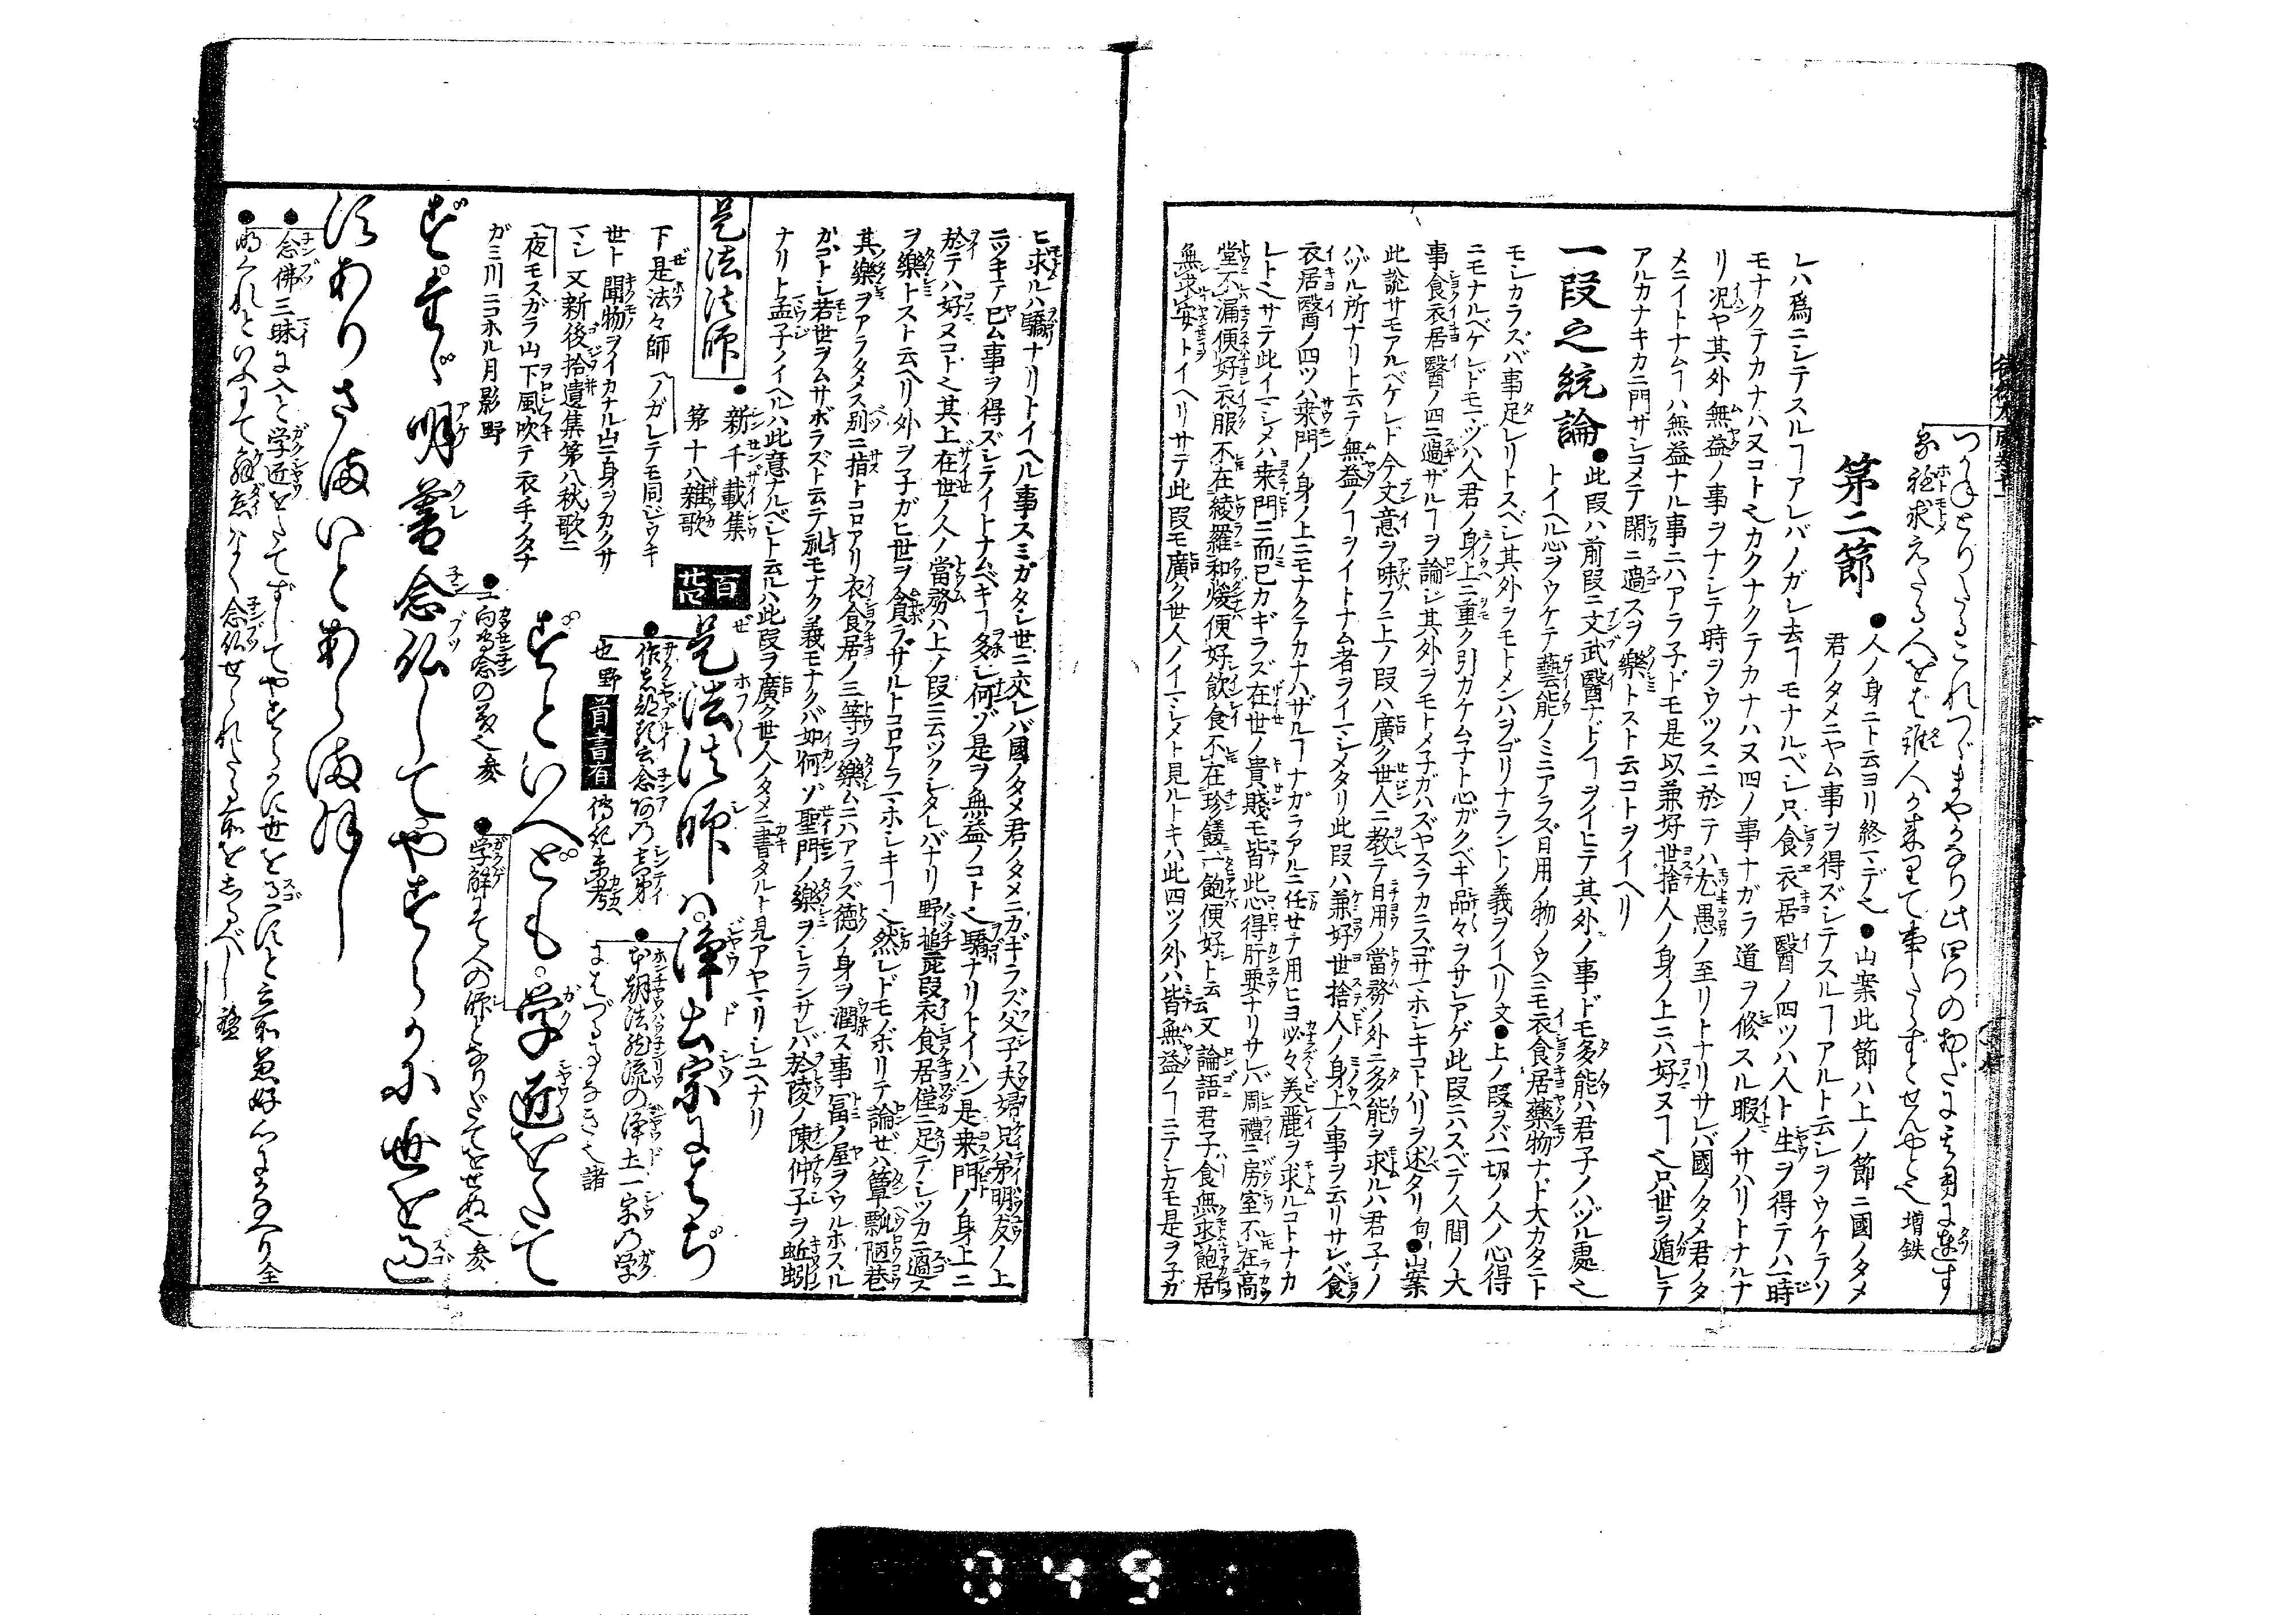 つゝねとりたるこれつゞまやかなり此四つのわざは其用に達す
る程求えたる人をば誰人か来りて事たらずとせんやと也 増鉄
第二節
●人ノ身ニト云ヨリ終マデ也●山案此節ハ上ノ節ニ國ノタメ
君ノタメニヤム事ヲ得ズシテスルヿアルト云シヲウケテソ
レハ爲ニシテスルヿアレバノガレ去ヿモナルベシ只食衣居醫ノ四ツハ人ト生ヲ得テハ一時
モナクテカナハヌコト也カクナクテカナハヌ四ノ事ナガラ道ヲ修スル暇ノサハリトナルナ
リ况ヤ其外無益ノ事ヲナシテ時ヲウツスニ於テハ尤愚ノ至リトナリサレバ國ノタメ君ノタ
メニイトナムヿハ無益ナル事ニハアラ子ドモ是以兼好世捨人ノ身ノ上ニハ好ヌヿ也只世ヲ遁レテ
アルカナキカニ門サシコメテ閑ニ過スヲ樂トスト云コトヲイヘリ
一段之統論
●此段ハ前段ニ文武醫ナドノヿヲイヒテ其外ノ事ドモ多能ハ君子ノハヅル處也
トイヘル心ヲウケテ藝能ノミニアラズ日用ノ物ノウヘニモ衣食居藥物ナド大カタニト
モシカラズバ事足レリトスベシ其外ヲモトメンハヲゴリナラントノ義ヲイヘリ文●上ノ段ヲバ一切ノ人ノ心得
ニモナルベケレドモマヅハ人君ノ身上ニ重ク引カケムナト心ガクベキ品々ヲサシアゲ此段ニハスベテ人間ノ大
事食衣居醫ノ四ニ過ザルヿヲ論ジ其外ヲモトメ子ガハズヤスラカニスゴサマホシキコトハリヲ述タリ句●山案
此說サモアルベケレド今文意ヲ味フニ上ノ段ハ廣ク世人ニ教テ日用ノ當務ノ外ニ多能ヲ求ルハ君子ノ
ハヅル所ナリト云テ無益ノヿヲイトナム者ヲイマシメタリ此段ハ兼好世捨人ノ身上ノ事ヲ云リサレバ食
衣居醫ノ四ツハ桒門ノ身ノ上ニモナクテカナハザルヿナガラアルニ任セテ用ヒヨ必々美麗ヲ求ルコトナカ
レト也サテ此イマシメハ桒門ニ而已カギラズ在世ノ貴賤モ皆此心得肝要ナリサレバ周禮ニ房室不在高
堂不漏便好衣服不在綾羅和煖便好飲食不在珍饈一飽便好ト云又論語君子食無求飽居
無求安トイヘリサテ此段モ廣ク世人ノイマシメト見ルトキハ此四ツノ外ハ皆無益ノヿニテシカモ是ヲ子ガ
ヒ求ルハ驕ナリトイヘル事スミガタシ世ニ交レバ國ノタメ君ノタメニカギラズ父子夫婦兄弟朋友ノ上
ニツキテ已ム事ヲ得ズシテイトナムベキヿ多シ何ゾ是ヲ無益ノコト也驕ナリトイハン是桒門ノ身上ニ
於テハ好ヌコト也其上在世ノ人ノ當務ハ上ノ段ニ云ツクシタレバナリ野槌此段衣食居僅ニ足テシヅカニ過ス
ヲ樂トスト云ヘリ外ヲ子ガヒ世ヲ貪ラザルトコロアラマホシキヿ也然レドモノボリテ論ぜバ簞瓢陋巷
其樂ヲアラタメス別ニ指トコロアリ衣食居ノ三等ヲ樂ムニハアラズ德ノ身ヲ潤ス事冨ノ屋ヲウルホスル
がコトシ若世ヲムサボラズト云テ礼モナク義モナクバ如何ゾ聖門ノ樂ヲシランサレバ於陵ノ陳仲子ヲ蚯蚓
ナリト孟子ノイヘルハ此意ナルベシト云ルハ此段ヲ廣ク世人ノタメニ書タルト見アヤマリシユヘナリ
是法法師
●新千載集
第十八雜歌
下是法々師〽ノガレテモ同ジウキ
世ト聞物ヲイカナル山ニ身ヲカクサ
マシ又新後拾遺集第八秋歌ニ
〽夜モスガラ山下風吹テ衣手ノタナ
ガミ川ニコホル月影野
百廿四
是法法師ハ浄土宗にはぢ
●作者部類云念阿乃弟
也野 首書有 傳記未考
●本朝法然流の浄土一宗乃学
にはづる事なき也諸
ずといへども学匠をたて
●学解にて人の師となりだてをせぬ也参
●一向専念の義也参
ず只明暮念仏してやすらかに世を過
すありさまいとあらまほし
●念佛三昧に入と学匠をたてずしてやすらかに世をすごすと云所兼好心にかなへり全
●明くれといふにて懈怠なく念仏せられたる所をしるべし 盤
049